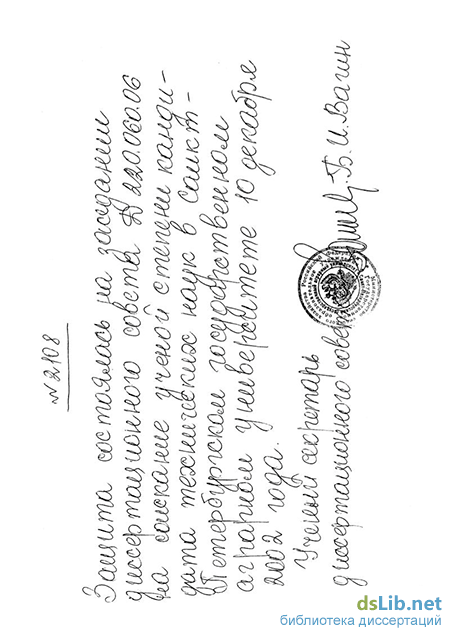 №2108
Защита состоялась на заседании
диссертационного совета Д 220.060.06
на соискание ученой степени канди-
дата технических наук в Санкт-
Петербургском государственном
аграрном университете 10 декабря
2002 года.
Ученый секретарь
диссертационного совета Б. И. Вагин
dsLib.net
библиотека диссертаций